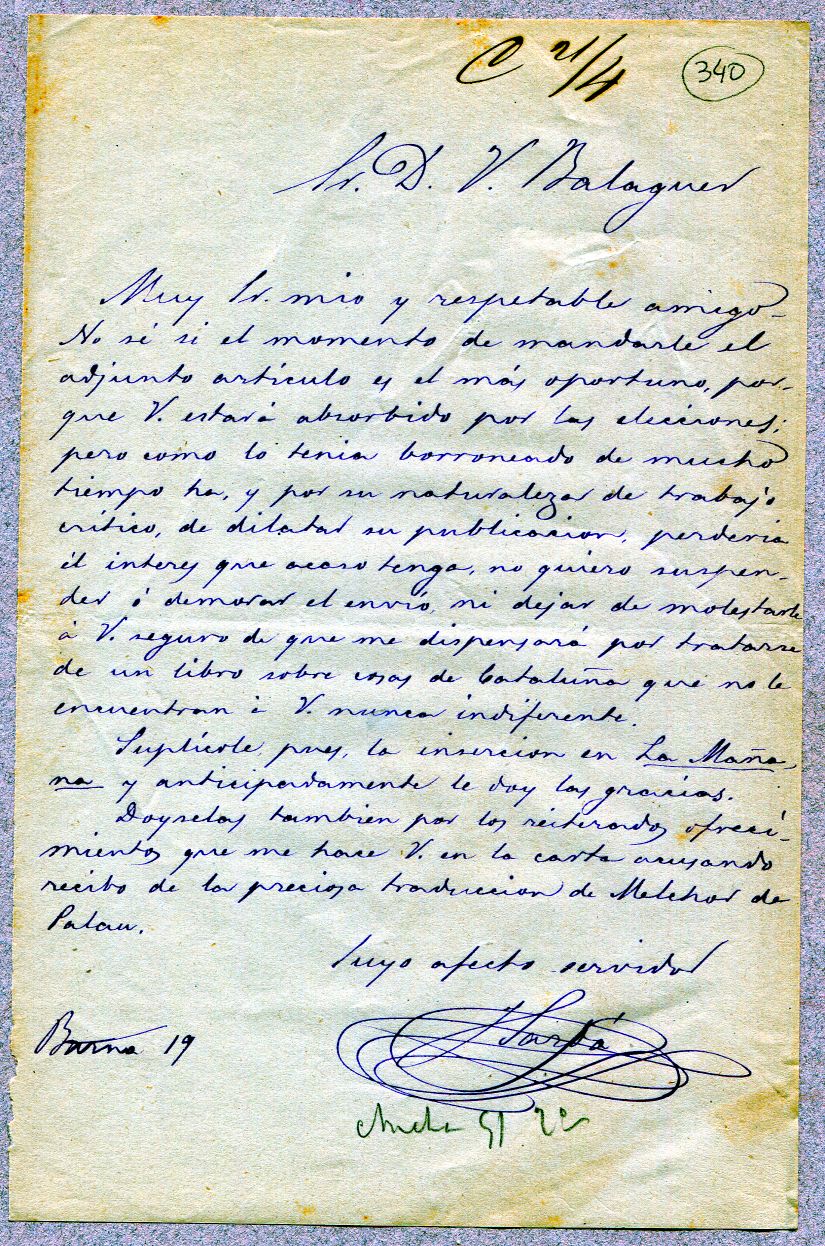 C 21/4
340
Sr. D. V. Balaguer
Muy Sr. mio y respetable amigo-
No sé si el momento de mandarle el
adjunto artículo es el más oportuno, por-
que V. estará absorbido por las elecciones;
pero como lo tenia borroneado de mucho
tiempo ha, y por su naturaleza de trabajo
crítico, de dilatar su publicacion, perderia
él interes que acaso tenga, no quiero suspen-
der ó demorar el envió, ni dejar de molestarle
á V. seguro de que me dispensará por tratarse
de un libro sobre cosas de Cataluña que no le
encuentran á V. nunca indiferente.
Suplícole, pues, la insercion en La Maña-
na y anticipadamente le doy las gracias.
Doyselas tambien por los reiterados ofreci-
mientos que me hace V. en la carta acusando
recibo de la preciosa traduccion de Melchor de
Palau.
Suyo afecto servidor
J Sardá
Barna 19